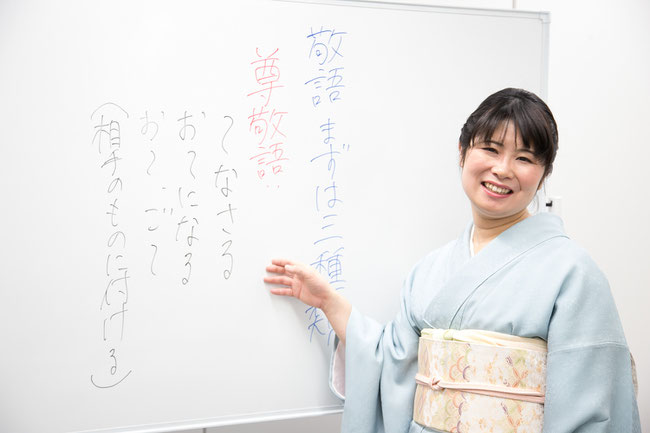 敬語 まずは三種類
尊敬語:
〜なさる
お〜になる
お〜、ご〜
(相手のものに付ける)